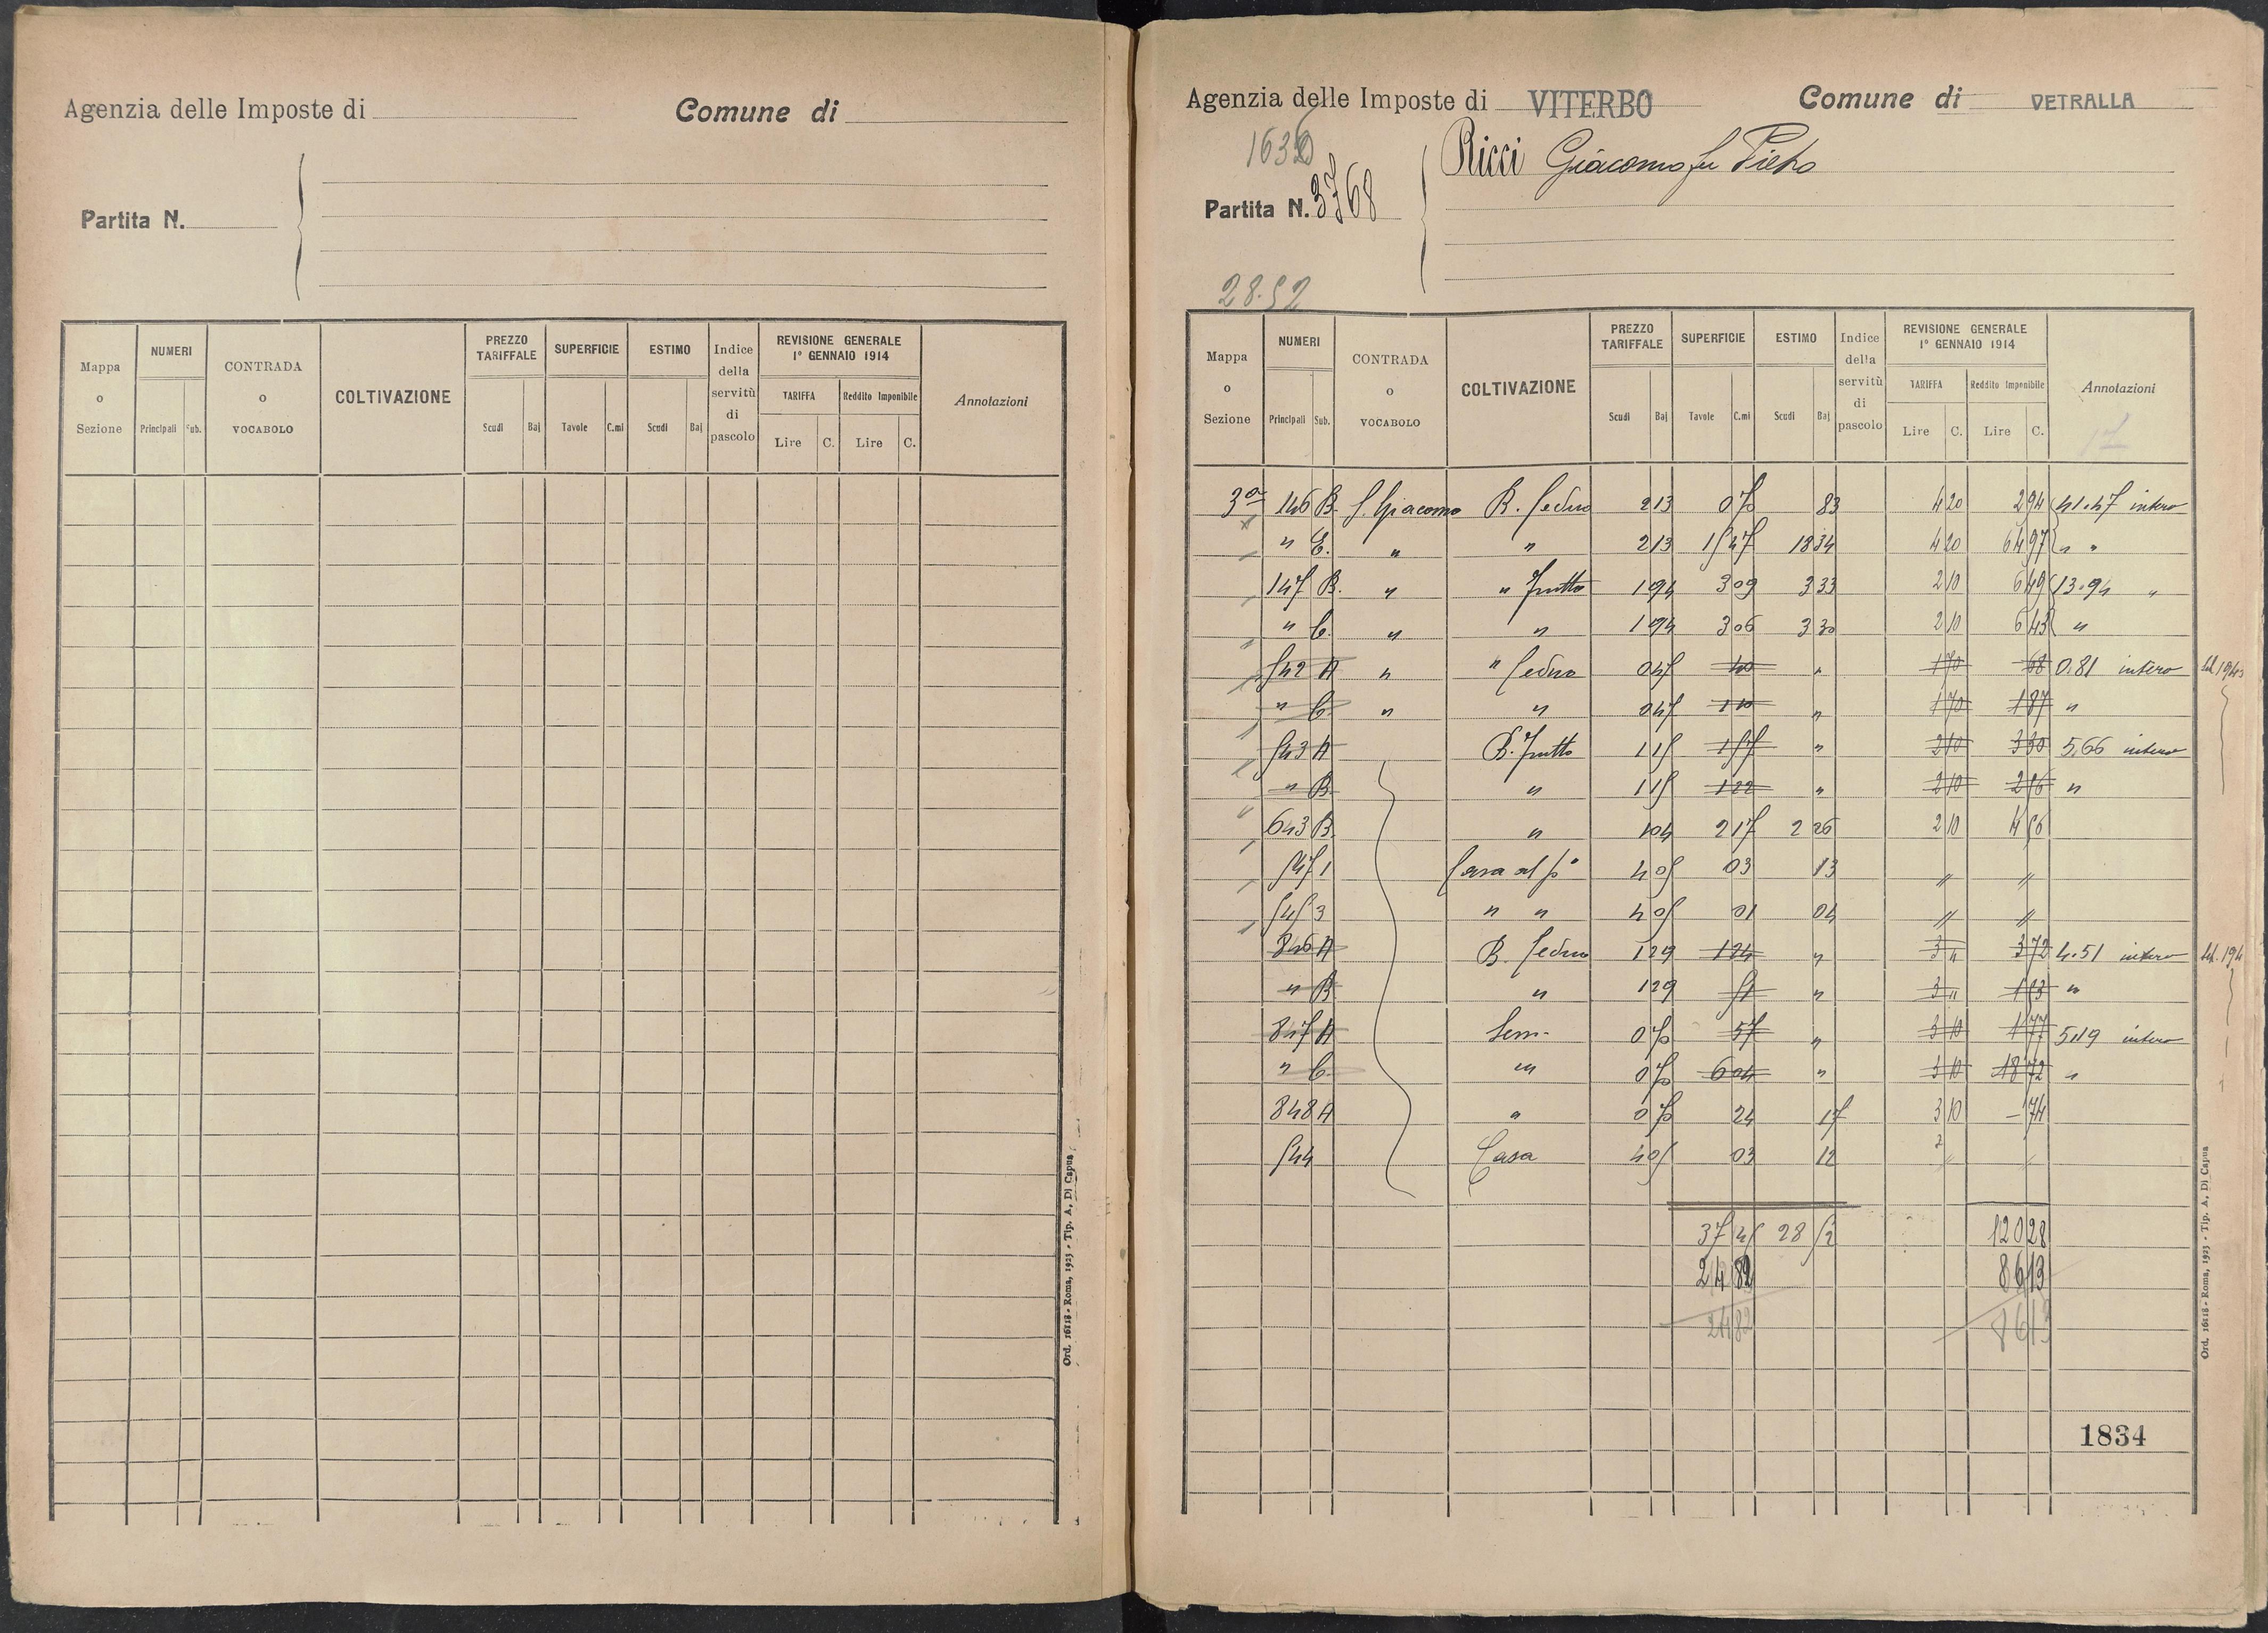 Agenzia delle Imposte di Comune di
Partita N.
Mappa o Sezione NUMERI Principali Sub. CONTRADA o VOCABOLO COLTIVAZIONE PREZZO TARIFFALE Scudi Baj SUPERFICIE Tavole C.mi ESTIMO Scudi Baj Indice della servitù di pascolo REVISIONE GENERALE 1° GENNAIO 1914 TARIFFA Lire C. Reddito Imponibile Lire C. Annotazioni
Ord. 16118 - Roma, 1923 - Tip. A. Di Capua
Agenzia delle Imposte di VITERBO Comune di VETRALLA
Ricci Giacomo fu Pietro
Partita N. 3768
28.52
Mappa o Sezione NUMERI Principali Sub. CONTRADA o VOCABOLO COLTIVAZIONE PREZZO TARIFFALE Scudi Baj SUPERFICIE Tavole C.mi ESTIMO Scudi Baj Indice della servitù di pascolo REVISIONE GENERALE 1° GENNAIO 1914 TARIFFA Lire C. Reddito Imponibile Lire C. Annotazioni
3ª 146 B. S. Giacomo B. Ceduo 2 13 0 70 83 4 20 2 94 41.47 intero
" C. " " 2 13 15 47 18 34 4 20 64 97 " "
147 B. " " Frutto 1 94 3 09 3 33 2 10 6 49 13.94 "
" C. " " 1 94 3 06 3 30 2 10 6 43 "
542 A " " Ceduo 0 47 40 " 1 70 68 0.81 intero
" C " " 0 47 1 10 " 1 70 1 87 "
543 A B. Frutto 1 15 1 57 " 2 10 3 30 5,66 intero
" B " 1 15 1 22 " 2 10 2 56 "
643 B " 1 04 2 17 2 26 2 10 4 56
547 1 Casa al p° 4 05 03 13 " "
545 3 " " 4 05 01 04 " "
846 A B. Ceduo 1 29 1 24 " 3 " 3 72 4.51 intero
" B " 1 29 51 " 3 " 1 53 "
847 A Sem. 0 70 57 " 3 10 1 77 5,19 intero
" C " 0 70 6 04 " 3 10 18 72 "
848 A " 0 70 24 17 3 10 - 74
544 Casa 4 05 03 12
37 45 28 52 120 28
24 82 86 13
24 82 86 13
1834
Ord. 16118 - Roma, 1923 - Tip. A. Di Capua